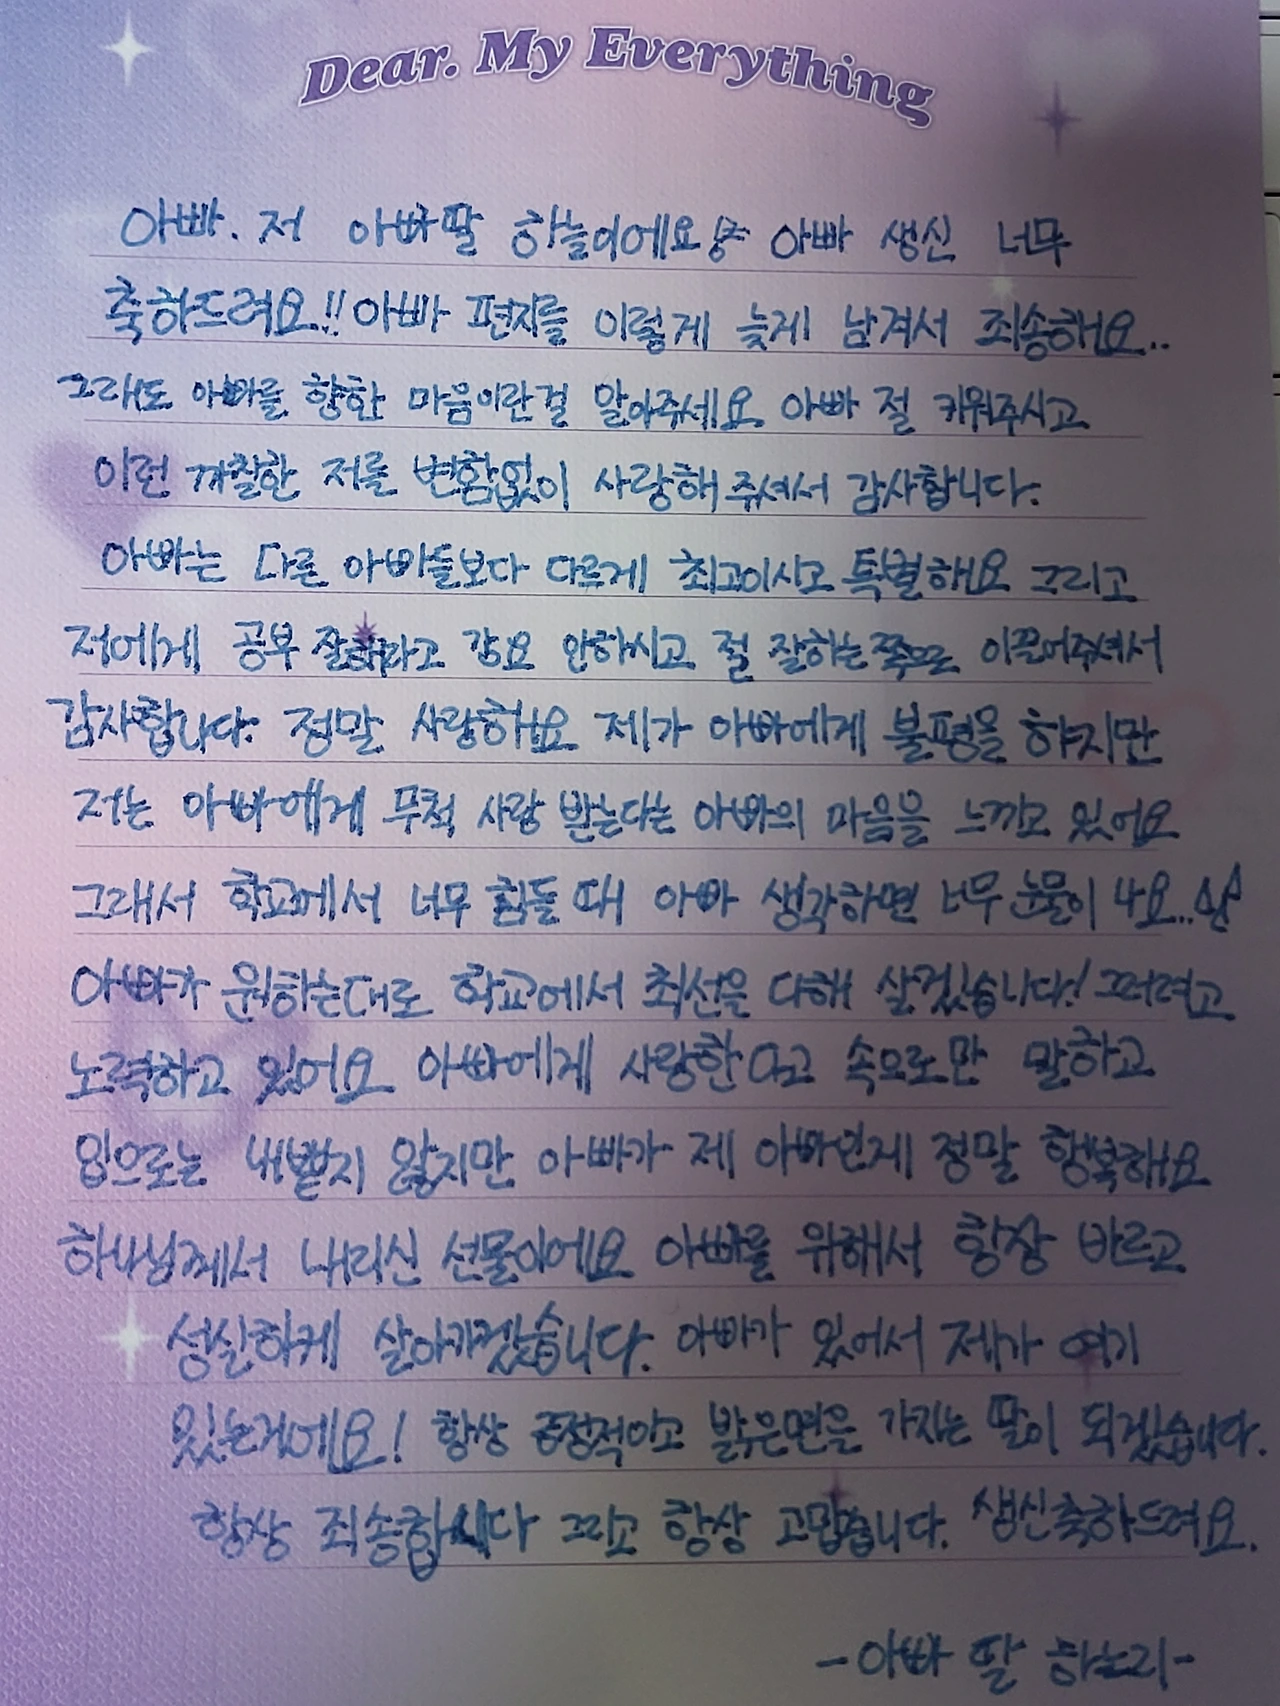 Dear. My Everything
아빠. 저 아빠딸 하늘이에요 아빠 생신 너무
축하드려요!! 아빠 편지를 이렇게 늦게 남겨서 죄송해요..
그래도 아빠를 향한 마음이란걸 알아주세요 아빠 절 키워주시고
이런 까칠한 저를 변함없이 사랑해 주셔서 감사합니다.
아빠는 다른 아빠들보다 다르게 최고이시고 특별해요 그리고
저에게 공부 잘해라고 강요 안하시고 절 잘하는쪽으로 이끌어주셔서
감사합니다. 정말 사랑해요 제가 아빠에게 불평을 하지만
저는 아빠에게 무척 사랑 받는다는 아빠의 마음을 느끼고 있어요
그래서 학교에서 너무 힘들 때 아빠 생각하면 너무 눈물이 나요..
아빠가 원하는대로 학교에서 최선을 다해 살겠습니다! 그러려고
노력하고 있어요 아빠에게 사랑한다고 속으로만 말하고
입으로는 내뱉지 않지만 아빠가 제 아빠인게 정말 행복해요
하나님께서 내리신 선물이에요 아빠를 위해서 항상 바르고
성실하게 살아가겠습니다. 아빠가 있어서 제가 여기
있는거에요! 항상 긍정적이고 밝은면을 가지는 딸이 되겠습니다.
항상 죄송합니다 그리고 항상 고맙습니다. 생신축하드려요.
-아빠 딸 하느리-